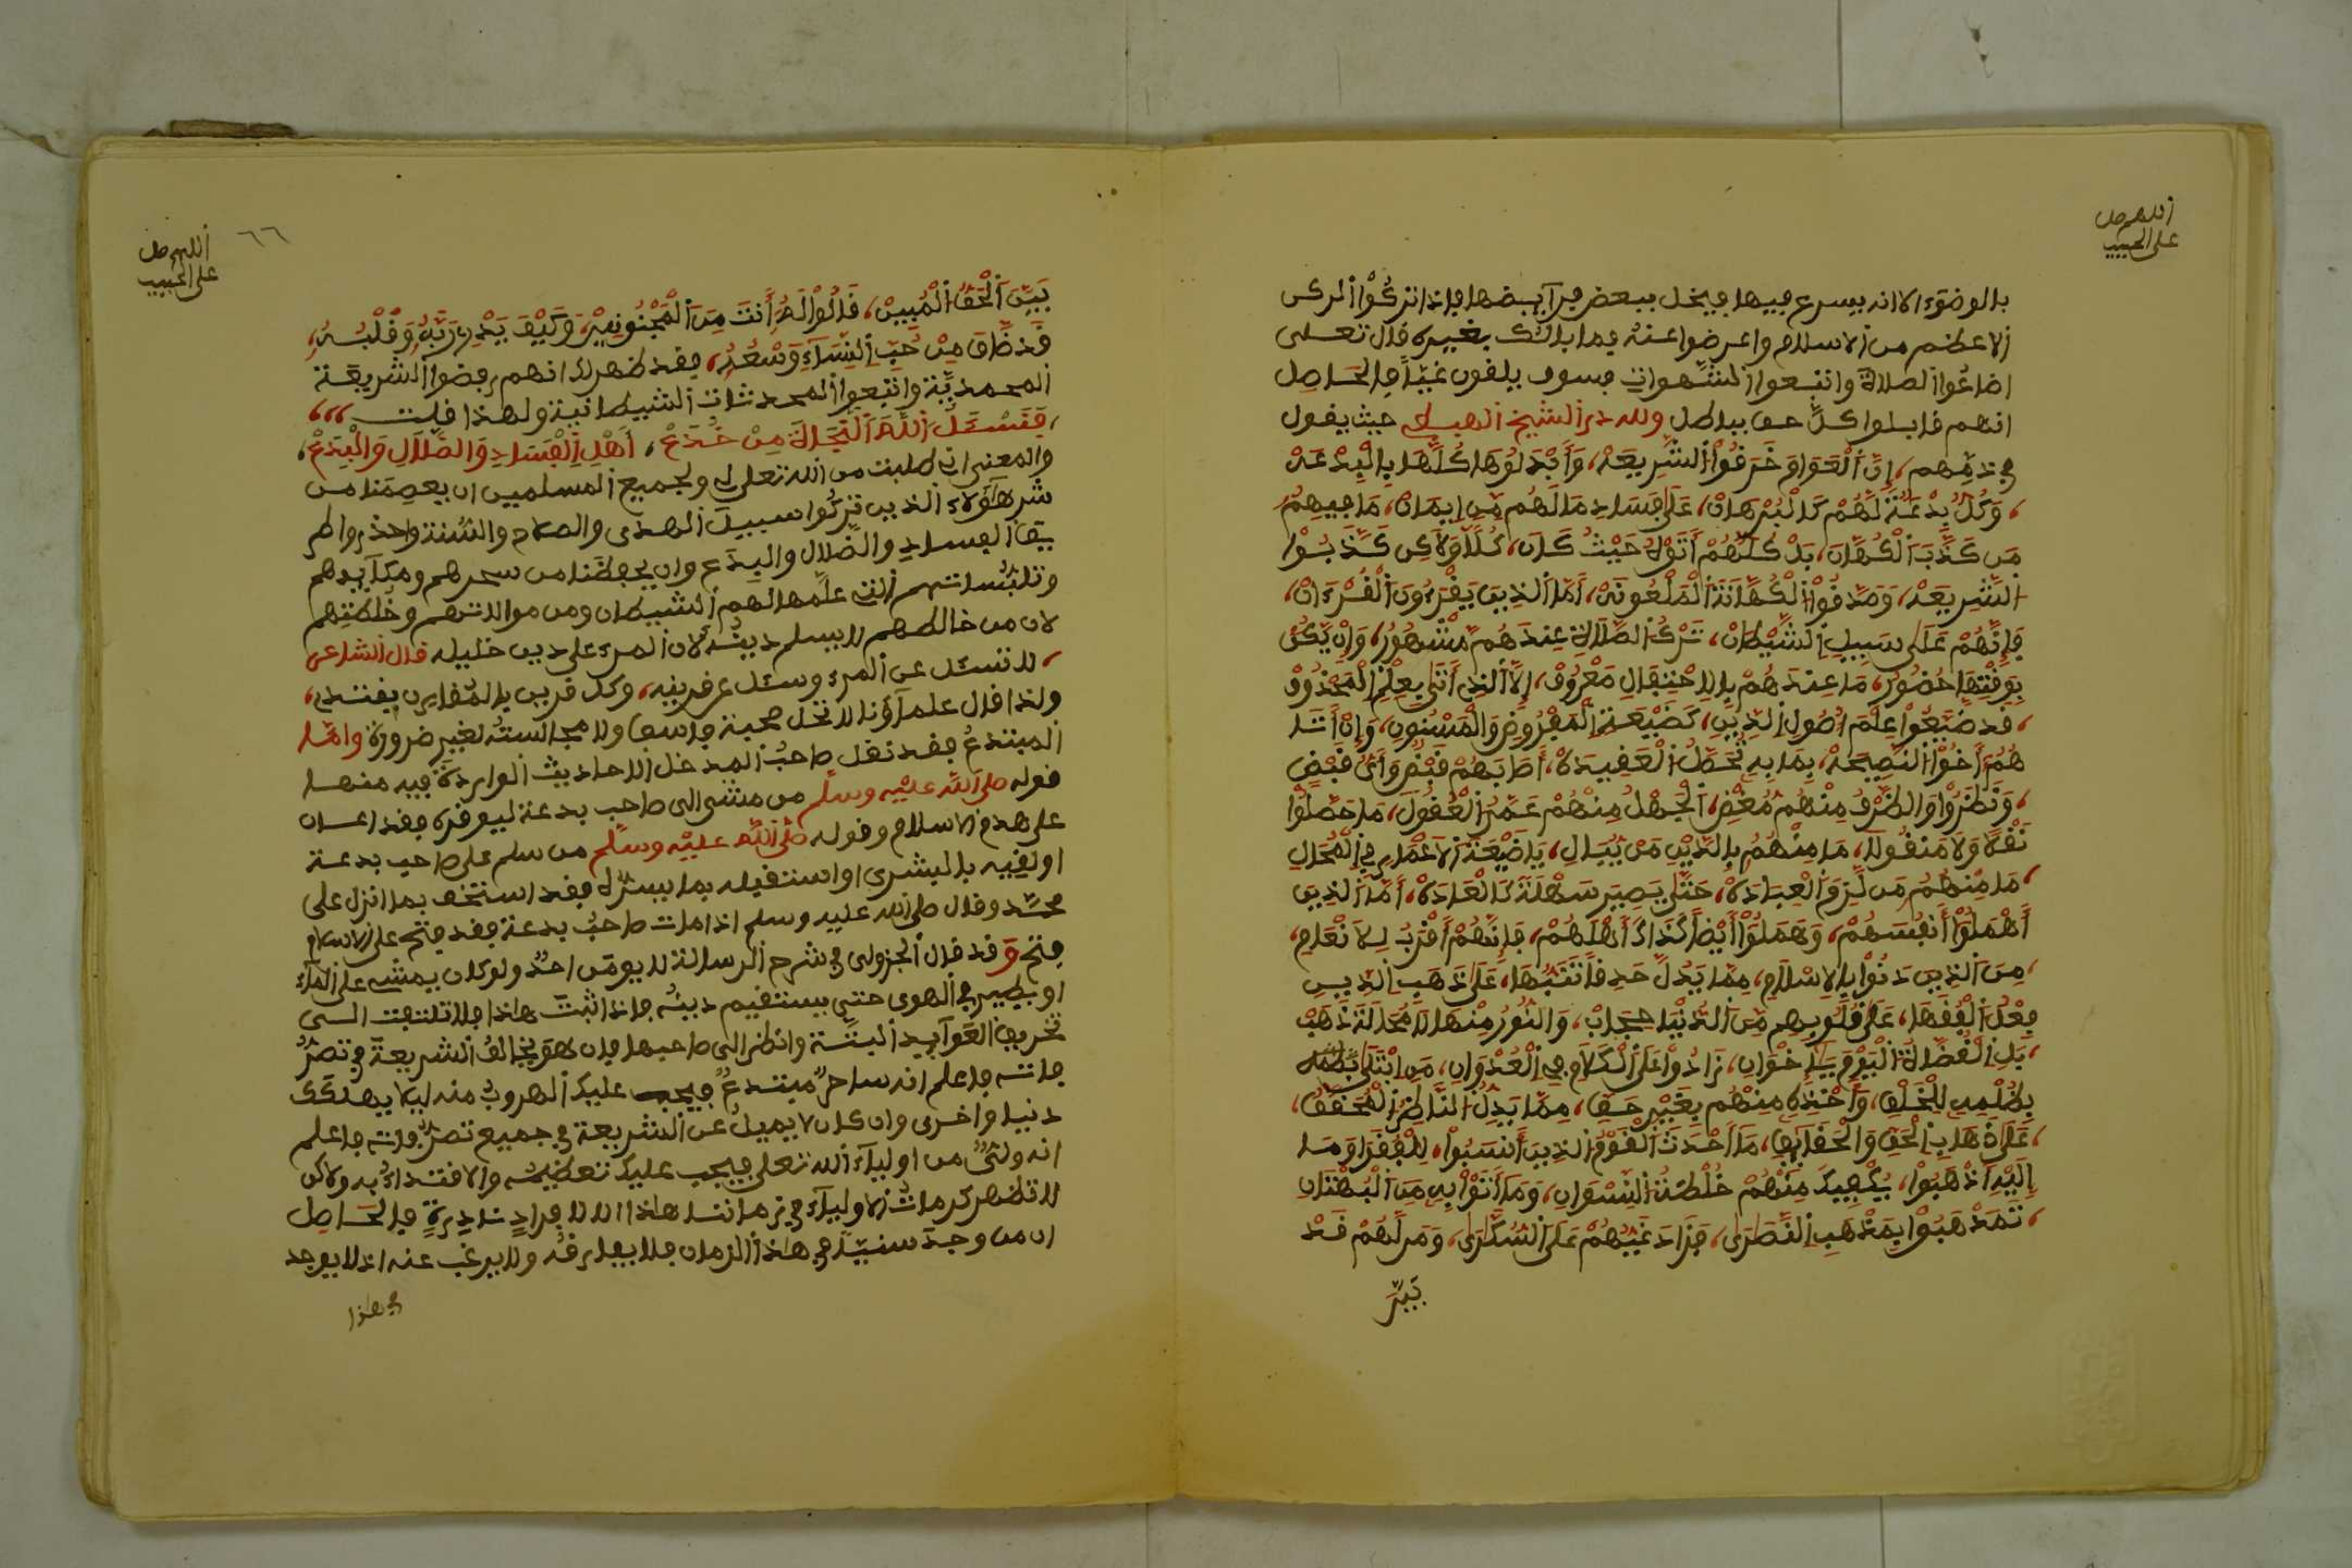 اللهم صل
على الحبيب
بالوضوء الا انه يسرع فيها فيخل ببعض فرآيضها فاذا تركوا الركن
الاعظم من الاسلام واعرضوا عنه فما بالك بغيره قال تعلى
اضاعوا الصلاة واتبعوا الشهوات فسوف يلقون غيا فالحاصل
انهم قابلوا كل حق بباطل ولله در الشيخ الهبطي حيث يقول
في ذمهم، إن العوام خرقوا الشريعه، وأبدلوها كلها بالبدعه
وكل بدعة لهم كالبرهان، على فساد ما لهم من إيمان، ما فيهم
من كذب الكهان، بل كلهم أتوه حيث كان، كلا ولاكن كذبوا
الشريعه، وصدقوا الكهانة الملعونه، أما الذين يقرءون القرءان،
فإنهم على سبيل الشيطان، ترك الصلاة عندهم مشهور، وإن يكن
بوقتها حضور، ما عندهم بالاحتفال معروف، إلا الذي أتى بعلم المحذوف
قد ضيعوا علم أصول الدين، كضيعة المفروض والمسنون، وإن أتا
هم أخوا النصيحه، بما به تحصل العقيده، أصابهم قبض وأي قبض
ونظروا والطرف منهم مغض، الجهل منهم عمر العقول، ما حصلوا
نقلا ولا منقولا، ما منهم بالدين من يبال، يا ضيعة الاعمار في المحال
ما منهم من لزم العباده، حتى يصير سهلة كالعاده، أما الذين
أهملوا أنفسهم، وهملوا أيضا كذاك أهلهم، فإنهم أقرب للانعام،
من الذين دنوا بالاسلام، مما يدل حد فانتبها، على ذهاب الدين
فعل الفقها، على قلوبهم من الدنيا حجاب، والنور منها لا محالة ذهب
بل القضاة اليوم يا إخوان، زادوا على الكلام في العدوان، من ابتلى
بظلمه للخلق، وأخذه منهم بغير حق، مما يدل الناظر المحقق،
على ذهاب الحق والحقايق، ما أحدث القوم الذين انسبوا، للفقرا وما
إليه اذهبوا، يكفيك منهم خلطة النسوان، وما أتوا به من البهتان
تمذهبوا بمذهب النصارى، فزاد غيهم على السكارى، ومن لهم قد
بين
اللهم صل
على الحبيب
٦٦
بين الحق المبين، قالوا له أنت من المجنونين، وكيف يدري ربه وقلبه،
قد ضاق من حب النساء وسعه، فقد ظهر لك انهم رفضوا الشريعة
المحمدية واتبعوا المحدثات الشيطانية ولهذا قلت
فنسئل الله النجاة من خدع، أهل الفساد والضلال والبدع،
والمعنى اني طلبت من الله تعلى لي ولجميع المسلمين ان يعصمنا من
شر هؤلاء الذين تركوا سبيل الهدى والصلاح والسنة واخذوا طر
يق الفساد والضلال والبدع وان يحفظنا من سحرهم ومكآيدهم
وتلبساتهم التي علمها لهم الشيطان ومن موالاتهم وخلطتهم
لان من خالطهم لا يسلم دينه لان المرء على دين خليله قال الشاعر
لا تسئل عن المرء وسئل عن قرينه، وكل قرين بالمقارن يقتدي،
ولذا قال علمآؤنا لا تحل صحبة فاسق ولا مجالسته لغير ضرورة واما
المبتدع فقد نقل صاحب المدخل الاحاديث الواردة فيه منها
قوله صلى الله عليه وسلم من مشى الى صاحب بدعة ليوقره فقد اعان
على هدم الاسلام وقوله صلى الله عليه وسلم من سلم على صاحب بدعة
او لقيه بالبشرى او استقبله بما يسره فقد استخف بما انزل على
محمد وقال صلى الله عليه وسلم اذا مات صاحب بدعة فقد فتح على الاسلام
فتح وقد قال الجزولي في شرح الرسالة لا يومن احد ولو كان يمشي على المآء
او يطير في الهوى حتى يستقيم دينه فاذا اثبت هاذا فلا تلتفت الى
تخريق العوآيد البتة وانظر الى صاحبها فان هو يخالف الشريعة في تصر
فاته فاعلم انه ساحر مبتدع فيجب عليك الهروب منه ليلا يهلكك
دنيا واخرى وان كان لا يميل عن الشريعة في جميع تصرفاته فاعلم
انه ولي من اوليآء الله تعلى فيجب عليك تعظيمه والاقتداء به ولاكن
لا تظهر كرمات الاوليآء في زماننا هاذا الا لافراد نادرة فالحاصل
ان من وجد سنيا في هاذا الزمان فلا يفارقه ولا يرغب عنه اذ لا يوجد
في هذا